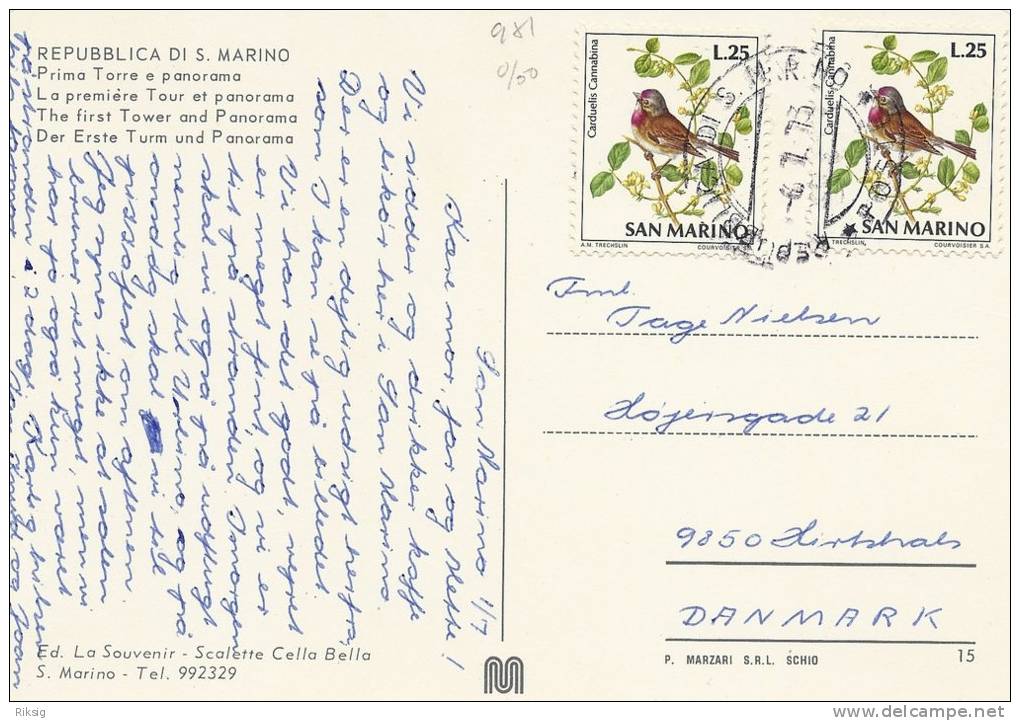 REPUBBLICA DI S. MARINO
Prima Torre e panorama
La première Tour et panorama
The first Tower and Panorama
Der Erste Turm und Panorama
981
0/50
Carduelis Cannabina
L.25
SAN MARINO
A.M. TRECHSLIN
COURVOISIER S.A.
Carduelis Cannabina
L.25
SAN MARINO
TRECHSLIN
COURVOISIER S.A.
San Marino 1/7
Kære mor, far og Mette!
Vi sidder og drikker kaffe
og likør her i San Marino.
Der er en dejlig udsigt herfra,
som I kan se på billedet.
Vi har det godt, vejret
er meget fint, og vi er
tit på stranden. Imorgen
skal vi også på udflugt
nemlig til Urbino, og på
onsdag skal vi til
fiskefest om aftenen.
Jeg synes ikke at solen
brænder ret meget, men vi
har jo også kun været
på stranden i 2 dage. Kærlig hilsen
Fml.
Tage Nielsen
Højersgade 21
9850 Hirtshals
DANMARK
Ed. La Souvenir - Scalette Cella Bella
S. Marino - Tel. 992329
P. MARZARI S.R.L. SCHIO
15
Riksig
www.delcampe.net